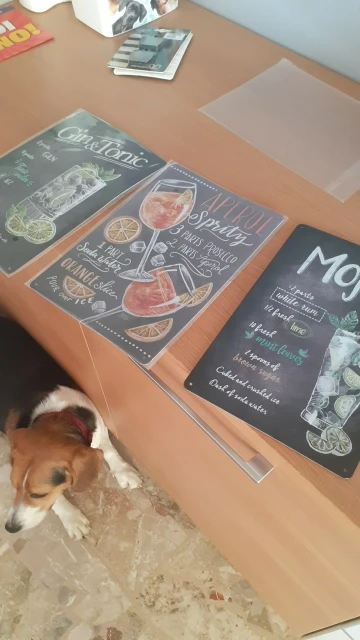 Gin & Tonic
GIN
APEROL
Spritz
3 PARTS PROSECCO
2 PARTS Aperol
1 PART
Soda Water
ORANGE Slice
POUR OVER ICE
Moj
2 parts
white rum
1/2 fresh
lime
12 fresh
mint leaves
2 spoons of
brown sugar
Cubed and crushed ice
Dash of soda water